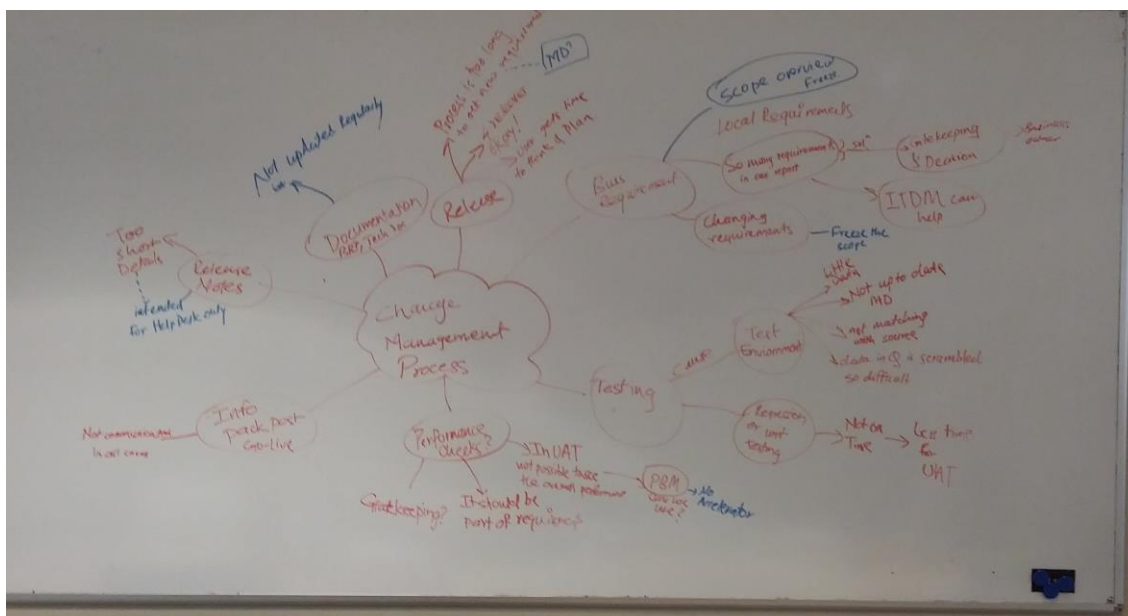 Change
Management
Process
Release
Process is too long
to get new requirement
MD?
okay!
User gets time
to think & Plan
Documentation
Not updated Regularly
Release
Notes
Too
short
Details
intended
for HelpDesk only
Info
pack post
Go-live
Not communicated
Performance
checks?
Gatekeeping?
It should be
part of requirements
In UAT
not possible
the overall performance
PBM
No
Accelerator
Testing
Test
Environment
Little
Data
Not up to date
MD
not matching
with source
data in Q is scrambled
so difficult
Regression
or unit
Testing
Not on
Time
Less time
for
UAT
Requirement
Scope overview
Freeze
Local Requirements
So many requirements
in one report
Gatekeeping
& Decision
Business
owner
ITDM can
help
Changing
requirements
Freeze the
scope